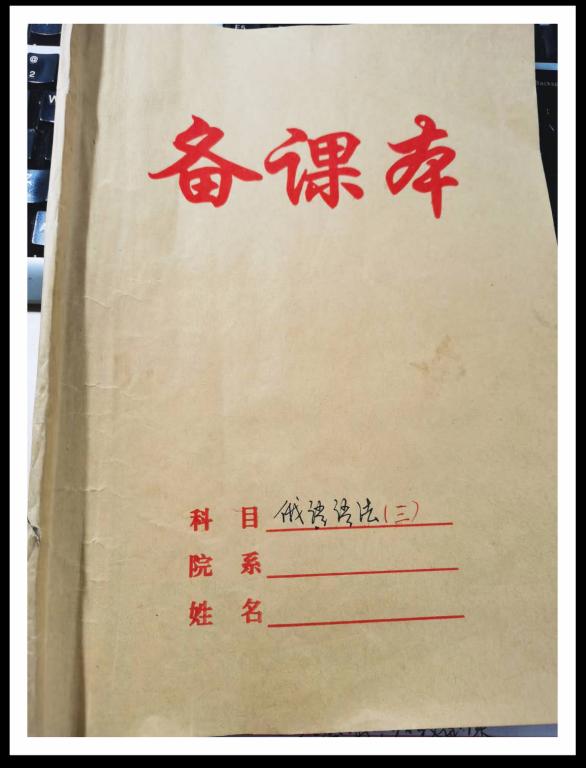 备课本
科 目 俄语语法(三)
院 系
姓 名